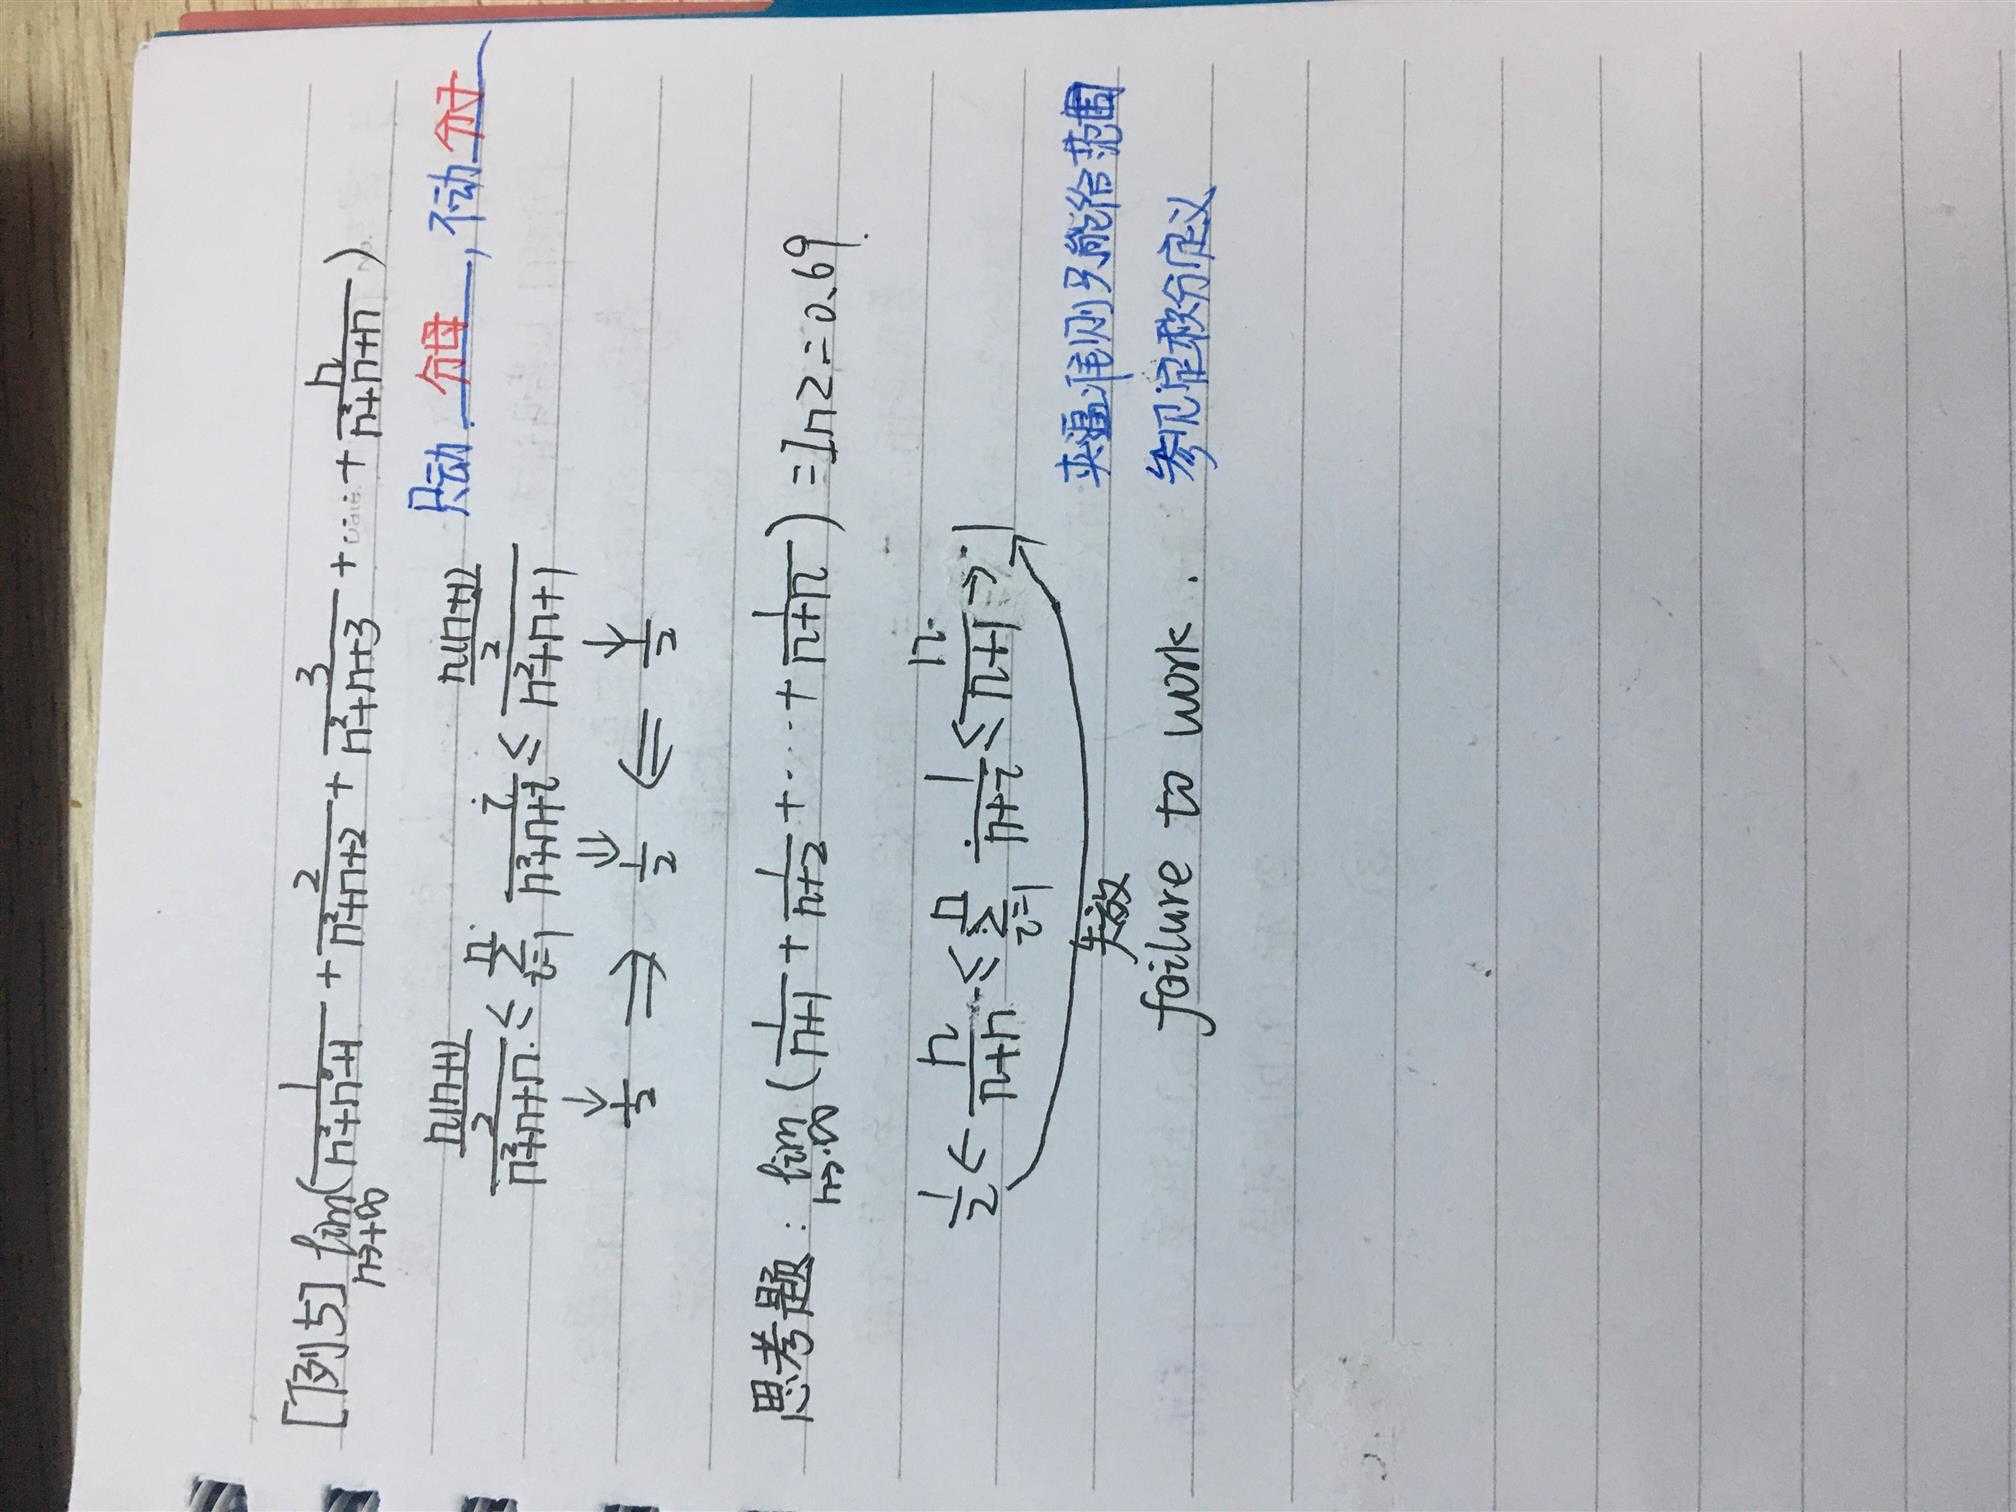 [例5] lim n→+∞ (1/(n²+n²+1) + 2/(n²+n+2) + 3/(n²+n+3) + … + n/(n²+n+n))
只动 分母, 不动 分子
(n(n+1)/2)/(n²+n+n) ≤ Σ_{i=1}^{n} i/(n²+n+i) ≤ (n(n+1)/2)/(n²+n+1)
↓ ⇓ ↓
1/2 ⇒ 1/2 ⇐ 1/2
思考题: lim n→∞ (1/(n+1) + 1/(n+2) + … + 1/(n+n)) = ln2 = 0.69.
1/2 ← n/(n+n) ≤ Σ_{i=1}^{n} 1/(n+i) ≤ n/(n+1) → 1
失效 夹逼准则只能给范围
failure to work. 参见定积分定义